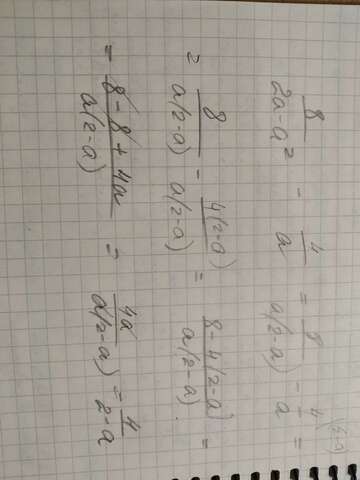 8/(2a-a²) - 4/a = 8/(a(2-a)) - 4/a (2-a) =
= 8/(a(2-a)) - 4(2-a)/(a(2-a)) = (8-4(2-a))/(a(2-a)) =
= (8-8+4a)/(a(2-a)) = 4a/(a(2-a)) = 4/(2-a)